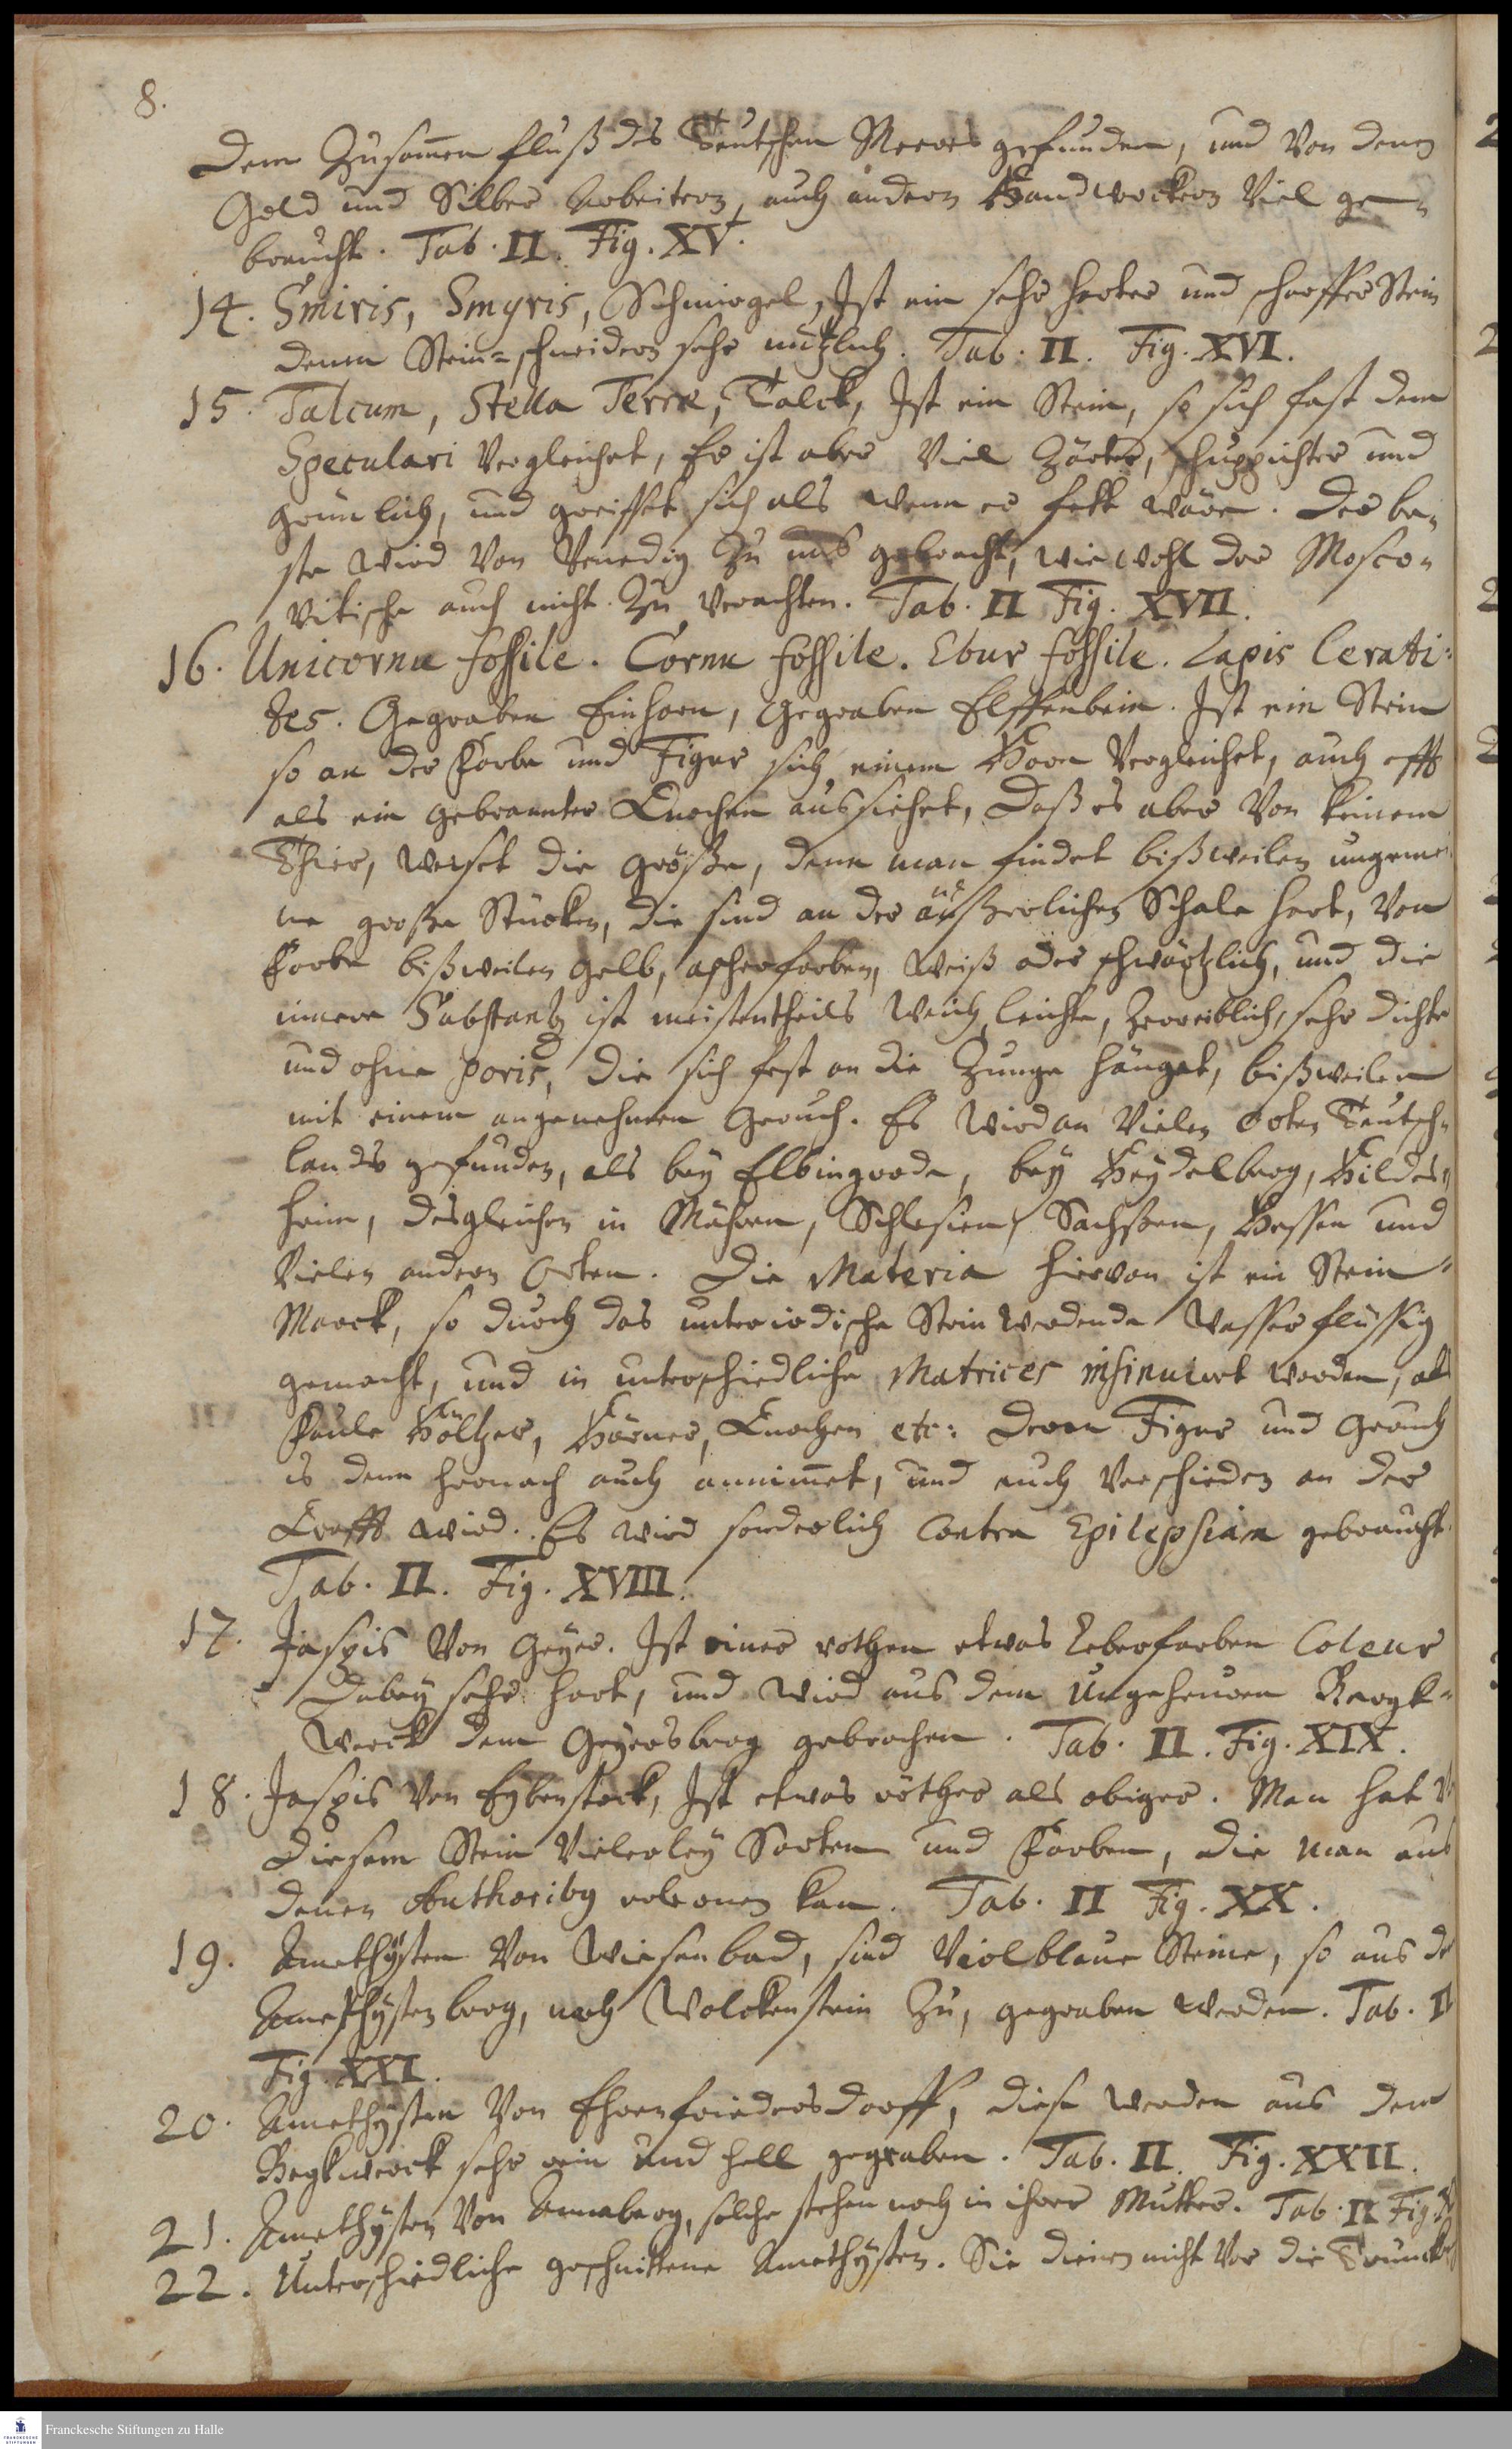 8.
Dem Zusam̄en fluß des Teutschen Meeres gefunden, und von denen
Gold und Silber Arbeitern, auch andern Handwerckern viel ge-
braucht. Tab. II. Fig. XV.
14. Smiris, Smyris, Schmirgel, Ist ein sehr harter und scharffer Stein
denen Stein-schneidern sehr nützlich. Tab: II. Fig. XVI.
15. Talcum, Stella Terræ, Talck, Ist ein Stein, so sich fast dem
Speculari vergleichet, Er ist aber viel Zärter, schuppichter und
grünlich, und greiffet sich als wenn er fett wäre. Der be-
ste wird von Venedig zu uns gebracht, wiewohl der Mosco-
vitische auch nicht zu verachten. Tab. II Fig. XVII.
16. Unicornu fossile. Cornu fossile. Ebur fossile. Lapis Cerati-
tes. Gegraben Einhorn, Gegraben Elffenbein. Ist ein Stein
so an der Farbe und Figur sich einem Horn vergleichet, auch offt
als ein gebrannter Knochen aussiehet, Daß es aber von keinem
Thier, weiset die größe, denn man findet bißweilen ungemei
ne große Stücken, die sind an der äußerlichen Schale hart, von
Farbe bißweilen gelb, ascherfarben, weiß oder schwärtzlich, und die
innere Substantz ist meistentheils weich, leichte, zerreiblich, sehr dichte
und ohne poris, die sich fest an die Zunge hänget, bißweilen
mit einem angenehmen Geruch. Es wird an vielen Orten Teutsch-
lands gefunden, als bey Elbingrode, bey Heydelberg, Hildes-
heim, desgleichen in Mähren, Schlesien, Sachßen, Hessen und
vielen andern Orten. Die Materia hiervon ist ein Stein-
Marck, so durch das unterirdische Stein werdende Wasser flüssig
gemacht, und in unterschiedliche Matrices insinuiert worden, als
Faule Höltzer, Hörner, Knochen etc: Deren Figur und Geruch
es denn hernach auch annim̄et, und auch verschieden an der
Krafft wird. Es wird sonderlich Contra Epilepsiam gebraucht.
Tab. II. Fig. XVIII.
17. Jaspis von Geyer. Ist einer rothen etwas Leberfarben Coleur
Dabey sehr hart, und wird aus dem Ungeheuren Bergk-
Werck dem Geyersberg gebrochen. Tab. II. Fig. XIX.
18. Jaspis von Eybenstock, Ist etwas röther als obiger. Man hat
Diesem Stein vielerley Sorten und Farben, die man aus
denen Authoribg erlernen kan. Tab. II Fig. XX.
19. Amethysten von Wiesenbad, sind Violblaue Steine, so aus de
Amethystenberg, nach Wolckenstein zu, gegraben werden. Tab. II
Fig. XXI.
20. Amethysten von Ehrenfriedersdorff, diese werden aus dem
Bergkwerck sehr rein und hell gegraben. Tab. II. Fig. XXII.
21. Amethysten von Annaberg, solche stehen noch in ihrer Mutter. Tab. II Fig.
22. Unterschiedliche geschnittene Amethysten. Sie dienen nicht vor die
Franckesche Stiftungen zu Halle